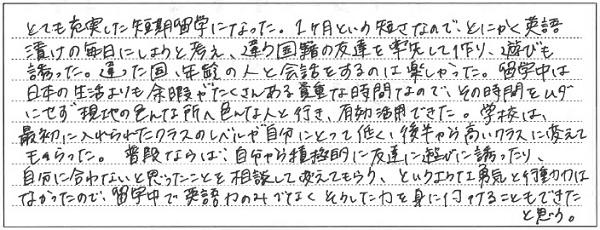 とても充実した短期留学になった。1ヶ月という短さなので、とにかく英語
漬けの毎日にしようと考え、違う国籍の友達を率先して作り、遊びも
誘った。違った国、年齢の人と会話をするのは楽しかった。留学中は
日本の生活よりも余暇がたくさんある貴重な時間なので、その時間をムダ
にせず現地の色んな所へ色んな人と行き、有効活用できた。学校は、
最初に入れられたクラスのレベルが自分にとって低く、後半から高いクラスに変えて
もらった。普段ならば、自分から積極的に友達に遊びに誘ったり、
自分に合わないと思ったことを相談して変えてもらう、というような勇気と行動力は
なかったので、留学中で英語力のみでなくそうした力を身に付けることもできた
と思う。